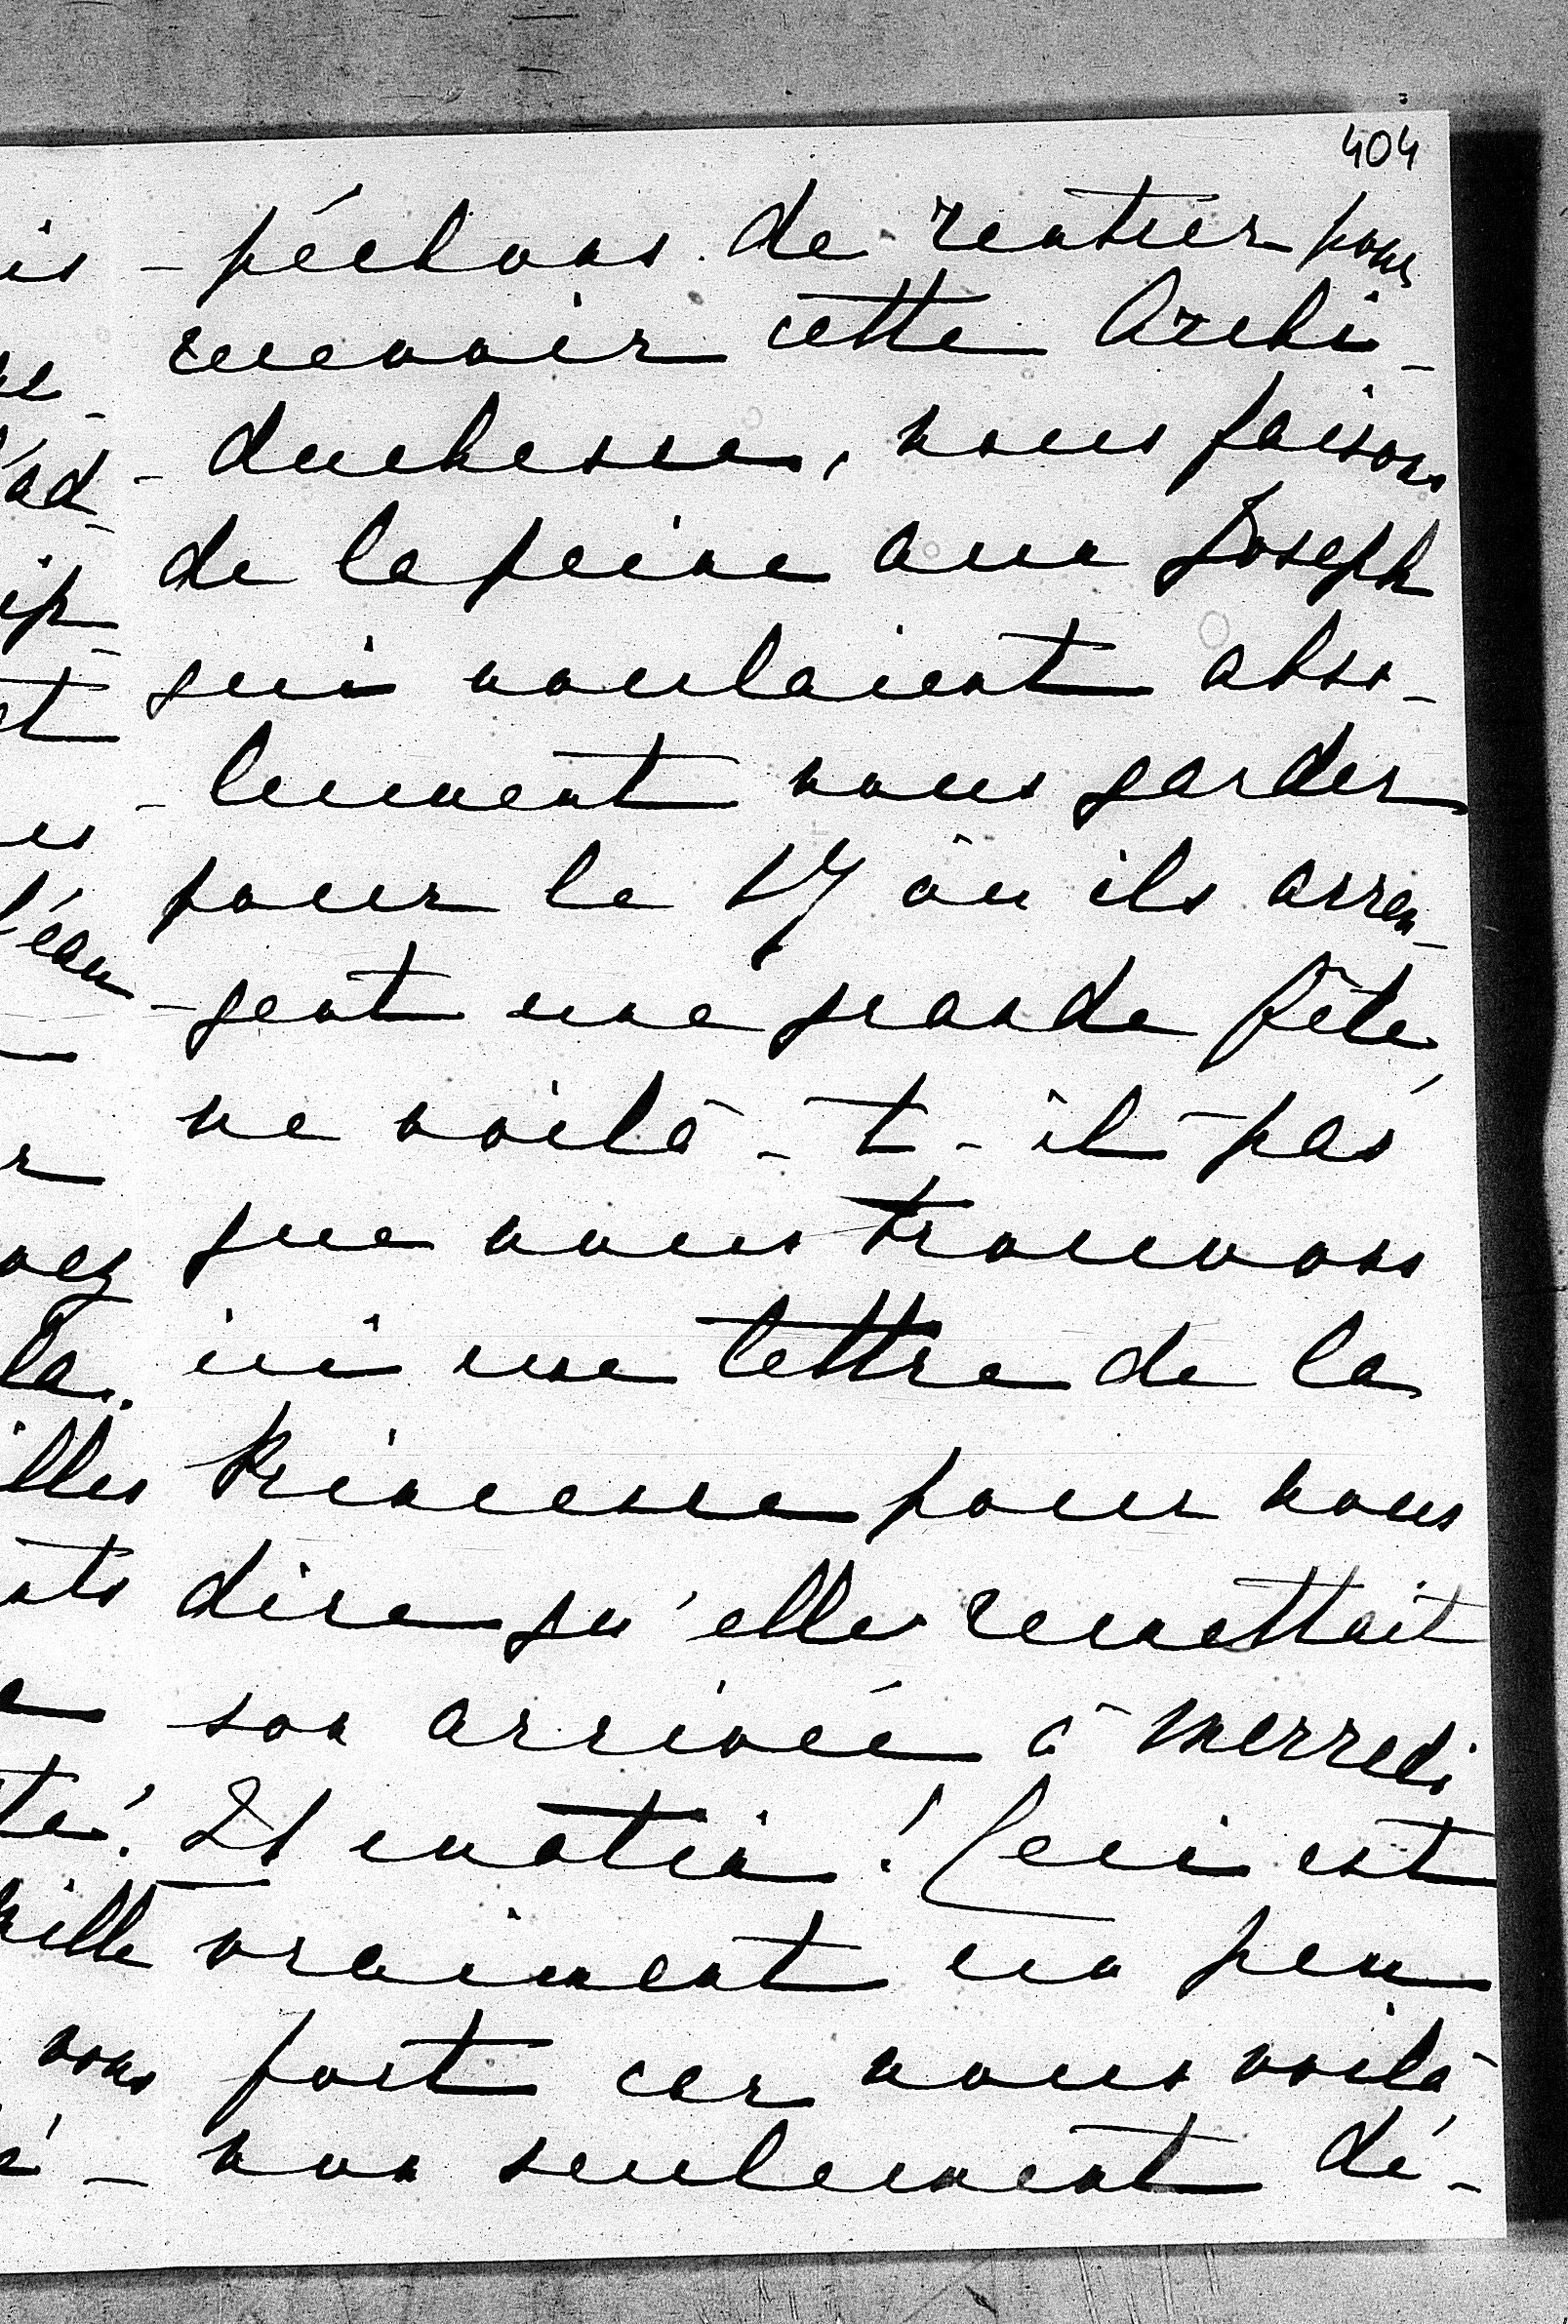 404
- pêchons de rentrer pour
recevoir cette Archi-
- duchesse, nous faisons
de la peine aux Joseph
qui voulaient abso-
- lument nous garder
pour le 17 où ils arran-
- gent une grande fête,
ne voilà-t-il pas
que nous trouvons
ici une lettre de la
Princesse pour nous
dire qu'elle remettait
son arrivée à mercredi
21 matin! Ceci est
vraiment un peu
fort car nous voilà
non seulement dé-